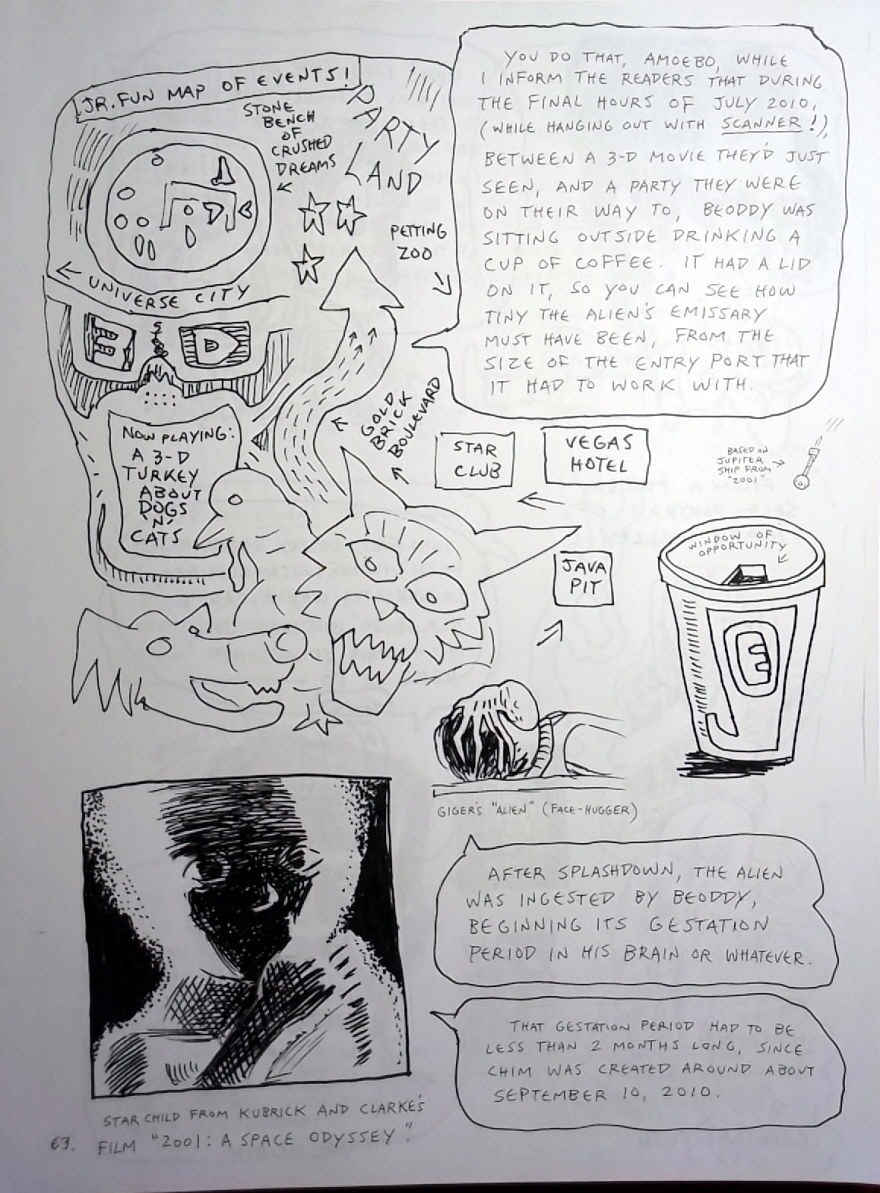 JR. FUN MAP OF EVENTS!
STONE
BENCH
OF
CRUSHED
DREAMS
PARTY
LAND
PETTING
ZOO
UNIVERSE CITY
3 D
NOW PLAYING:
A 3-D
TURKEY
ABOUT
DOGS
'N'
CATS
GOLD
BRICK
BOULEVARD
STAR
CLUB
VEGAS
HOTEL
JAVA
PIT
YOU DO THAT, AMOEBO, WHILE
I INFORM THE READERS THAT DURING
THE FINAL HOURS OF JULY 2010,
(WHILE HANGING OUT WITH SCANNER!),
BETWEEN A 3-D MOVIE THEY'D JUST
SEEN, AND A PARTY THEY WERE
ON THEIR WAY TO, BEODDY WAS
SITTING OUTSIDE DRINKING A
CUP OF COFFEE. IT HAD A LID
ON IT, SO YOU CAN SEE HOW
TINY THE ALIEN'S EMISSARY
MUST HAVE BEEN, FROM THE
SIZE OF THE ENTRY PORT THAT
IT HAD TO WORK WITH.
BASED ON
JUPITER
SHIP FROM
"2001"
WINDOW OF
OPPORTUNITY
E
GIGER'S "ALIEN" (FACE-HUGGER)
AFTER SPLASHDOWN, THE ALIEN
WAS INGESTED BY BEODDY,
BEGINNING ITS GESTATION
PERIOD IN HIS BRAIN OR WHATEVER.
THAT GESTATION PERIOD HAD TO BE
LESS THAN 2 MONTHS LONG, SINCE
CHIM WAS CREATED AROUND ABOUT
SEPTEMBER 10, 2010.
STAR CHILD FROM KUBRICK AND CLARKE'S
FILM "2001: A SPACE ODYSSEY".
63.